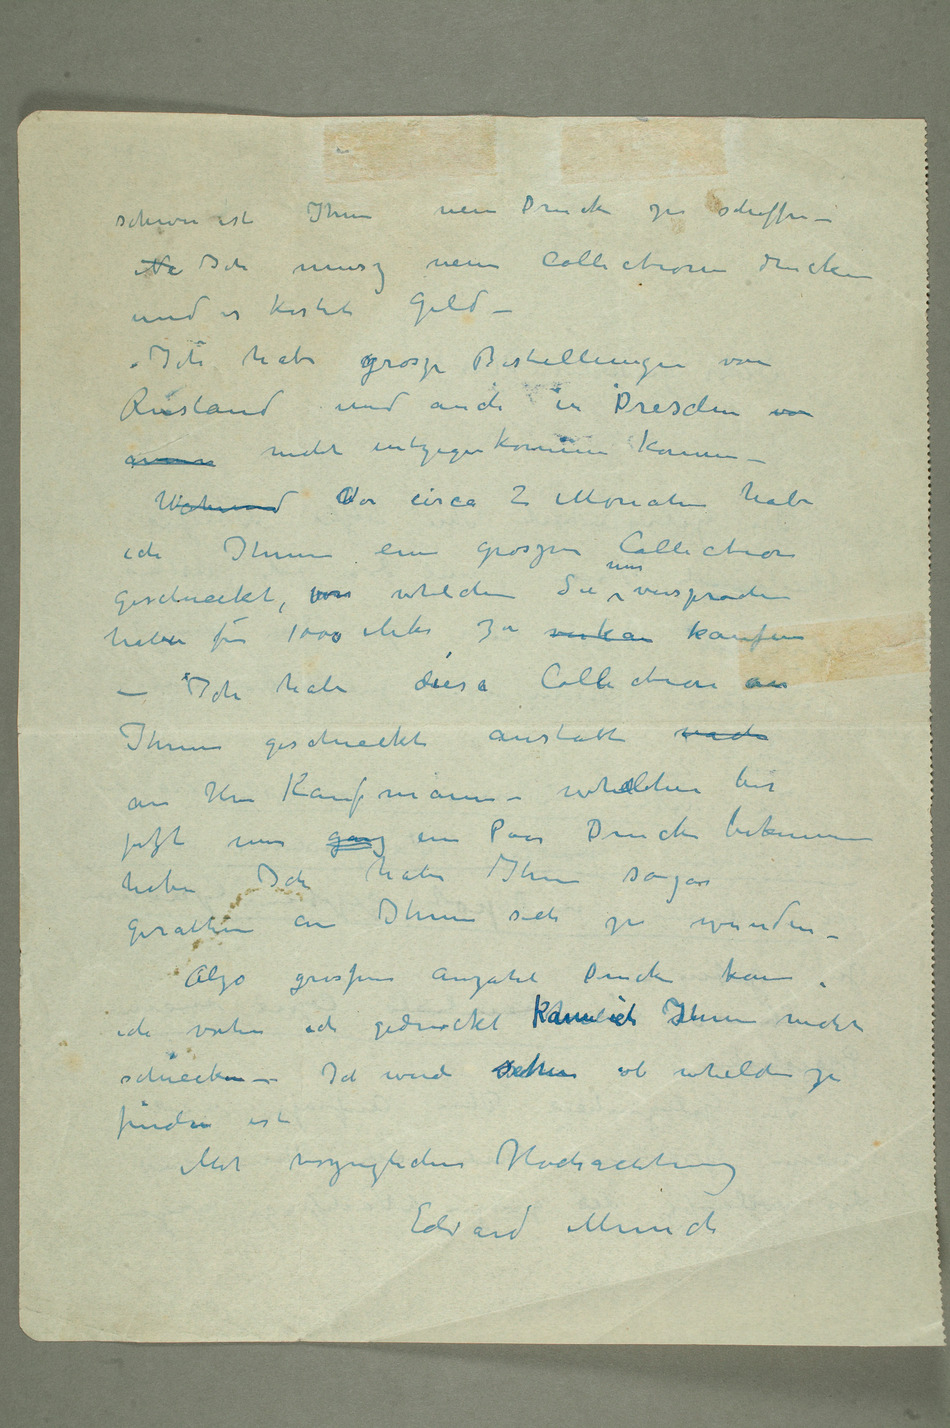 schwer ist Ihnen neue Drucke zu schaffen –
Ich musz neue Collectionen drucken
und es kostet Geld –
Ich habe grosze Bestellungen von
Rusland und auch in Dresden
nicht entgegenkommen können –
Wahrend Vor circa 2 Monaten habe
ich Ihnen eine groszen Collection
geschieckt, von whelchen Sie mir versprochen
haben für 1000 Mk zu verkau kaufen
– Ich habe diese Collection an
Ihnen geschieckt anstatt nach
an Hrn Kaufmann – whelchen bis
jetzt nur ganz ein Paar Drucke bekommen
haben Ich habe Ihm sogar
gerathen an Ihnen sich zu wenden –
Also grossen Anzahl Drucke kann
ich vorher ich gedruckt kann ich Ihnen nicht
schiecken – Ich werde sehen ob whelche zu
finden ist
Mit vorzuglichen Hochachtung
Edvard Munch